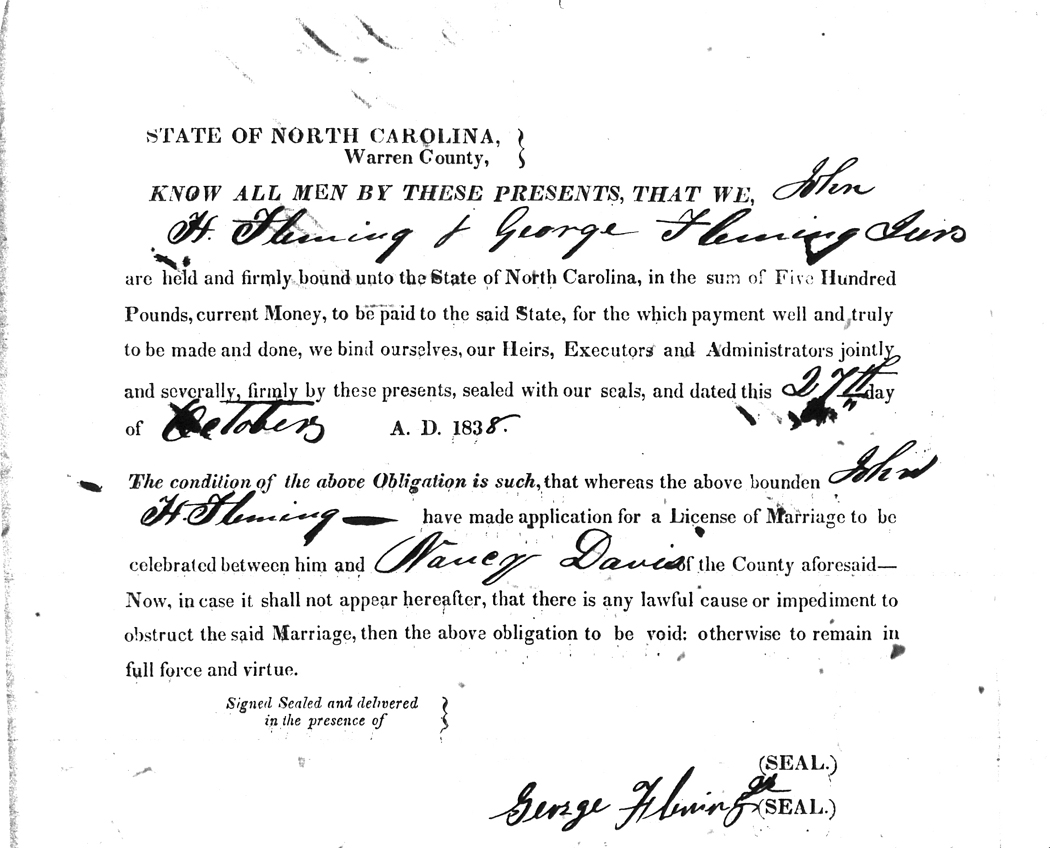 STATE OF NORTH CAROLINA,
Warren County,
KNOW ALL MEN BY THESE PRESENTS, THAT WE, John
H. Fleming & George Fleming
are held and firmly bound unto the State of North Carolina, in the sum of Five Hundred
Pounds, current Money, to be paid to the said State, for the which payment well and truly
to be made and done, we bind ourselves, our Heirs, Executors and Administrators jointly
and severally, firmly by these presents, sealed with our seals, and dated this 27th day
of October A. D. 1838.
The condition of the above Obligation is such, that whereas the above bounden John
H. Fleming — have made application for a License of Marriage to be
celebrated between him and Nancy Davis of the County aforesaid—
Now, in case it shall not appear hereafter, that there is any lawful cause or impediment to
obstruct the said Marriage, then the above obligation to be void: otherwise to remain in
full force and virtue.
Signed Sealed and delivered
in the presence of
(SEAL.)
George Fleming Jr (SEAL.)